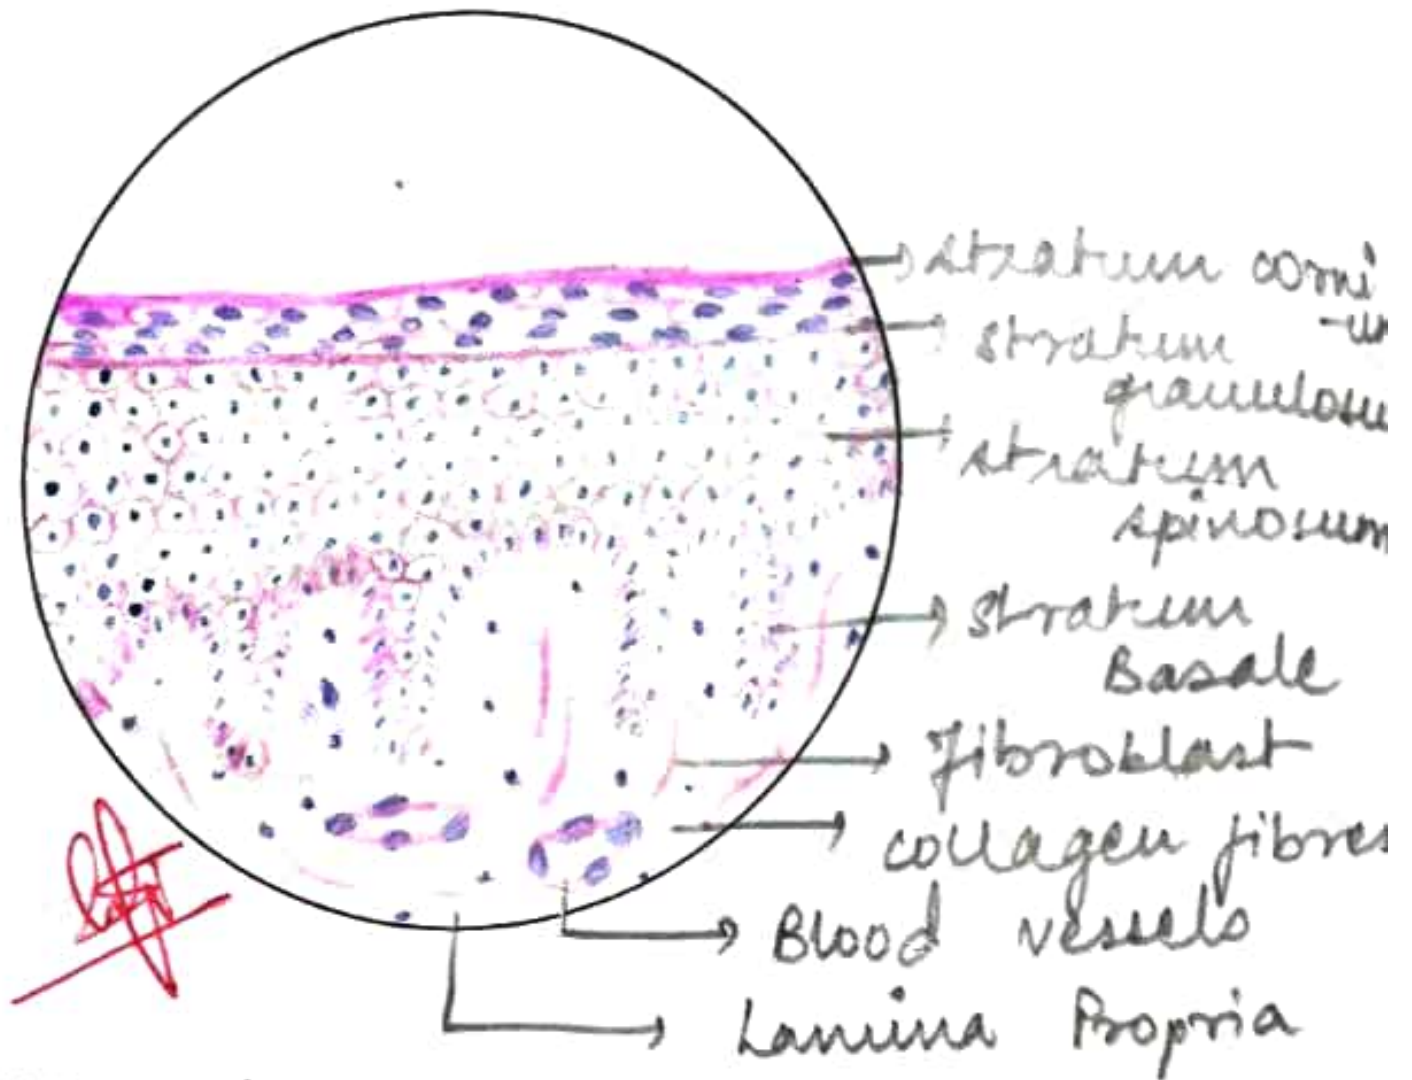 stratum corni
-um
stratum
granulosu
stratum
spinosum
stratum
Basale
Fibroblast
collagen fibres
Blood vessels
Lamina Propria